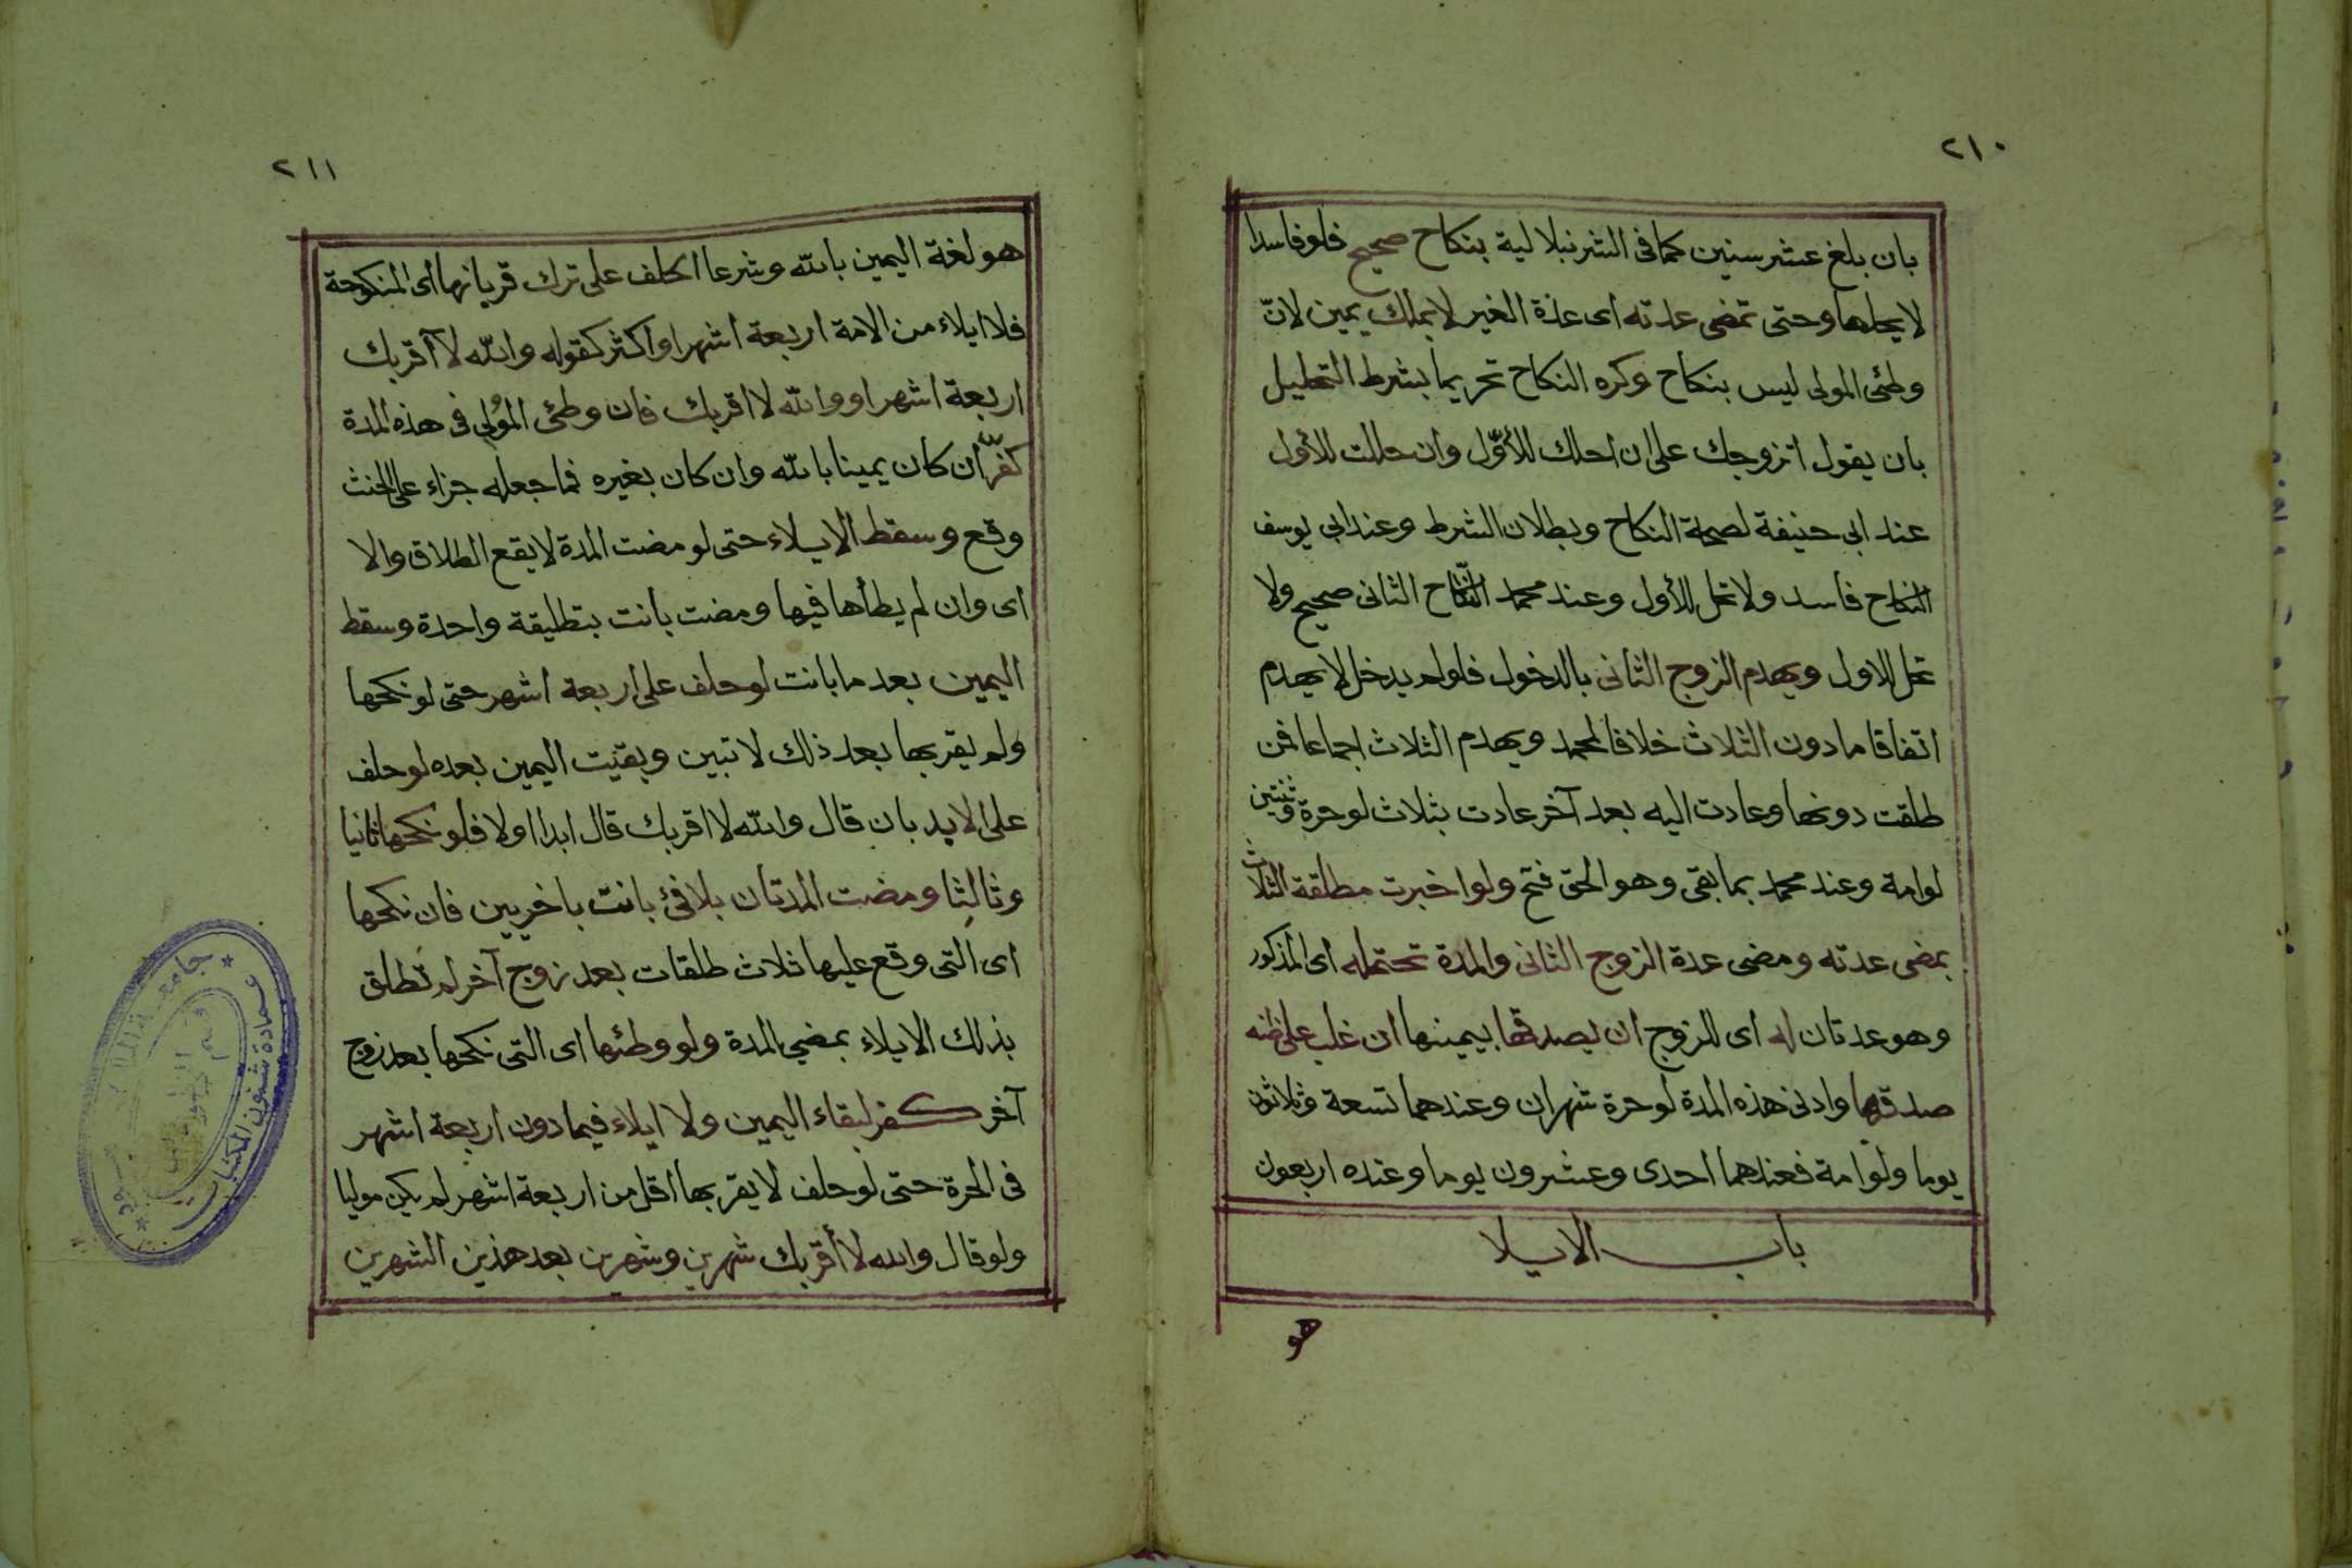 ٢١٠
بان بلغ عشر سنين كما فى الشرنبلالية بنكاح صحيح فلو فاسدا
لا يحلها وحتى تمضى عدته اى عدة الغير لا بملك يمين لانّ
وطئ المولى ليس بنكاح وكره النكاح تحريما بشرط التحليل
بان يقول اتزوجك على ان احلك للأوّل وان حللت للأول
عند ابى حنيفة لصحة النكاح وبطلان الشرط وعند ابى يوسف
النكاح فاسد ولا تحل للأول وعند محمد النّكاح الثانى صحيح ولا
تحل للاول ويهدم الزوج الثانى بالدخول فلو لم يدخل لا يهدم
اتفاقا ما دون الثلاث خلافا لمحمد ويهدم الثلاث اجماعا فمن
طلقت دونها وعادت اليه بعد آخر عادت بثلاث لو حرة وثنتين
لو امة وعند محمد بما بقى وهو الحق فتح ولو اخبرت مطلقة الثلاث
بمضى عدته ومضى عدة الزوج الثانى والمدة تحتمله اى المذكور
وهو عدتان له اى للزوج ان يصدقها بيمينها ان غلب على ظنه
صدقها وادنى هذه المدة لو حرة شهران وعندهما تسعة وثلاثون
يوما ولو امة فعندهما احدى وعشرون يوما وعنده اربعون
باب الايلا
هو
٢١١
هو لغة اليمين بالله وشرعا الحلف على ترك قربانها اى المنكوحة
فلا ايلاء من الامة اربعة اشهر او اكثر كقوله والله لا آقربك
اربعة اشهر او والله لا اقربك فان وطئ المُولى فى هذه المدة
كفّر ان كان يمينا بالله وان كان بغيره فما جعله جزاء على الحنث
وقع وسقط الايلاء حتى لو مضت المدة لا يقع الطلاق والا
اى وان لم يطأها فيها ومضت بانت بتطليقة واحدة وسقط
اليمين بعد ما بانت لو حلف على اربعة اشهر حتى لو نكحها
ولم يقربها بعد ذلك لا تبين وبقيت اليمين بعده لو حلف
على الابد بان قال والله لا اقربك قال ابدا اولا فلو نكحها ثانيا
وثالثا ومضت المدتان بلا فئ بانت باخريين فان نكحها
اى التى وقع عليها ثلاث طلقات بعد زوج آخر لم تطلق
بذلك الايلاء بمضي المدة ولو وطئها اى التى نكحها بعد زوج
آخر كفر لبقاء اليمين ولا ايلاء فيما دون اربعة اشهر
فى الحرة حتى لو حلف لا يقربها اقل من اربعة اشهر لم يكن موليا
ولو قال والله لا أقربك شهرين وشهرين بعد هذين الشهرين
جامعة
عمادة شئون المكتبات
قسم